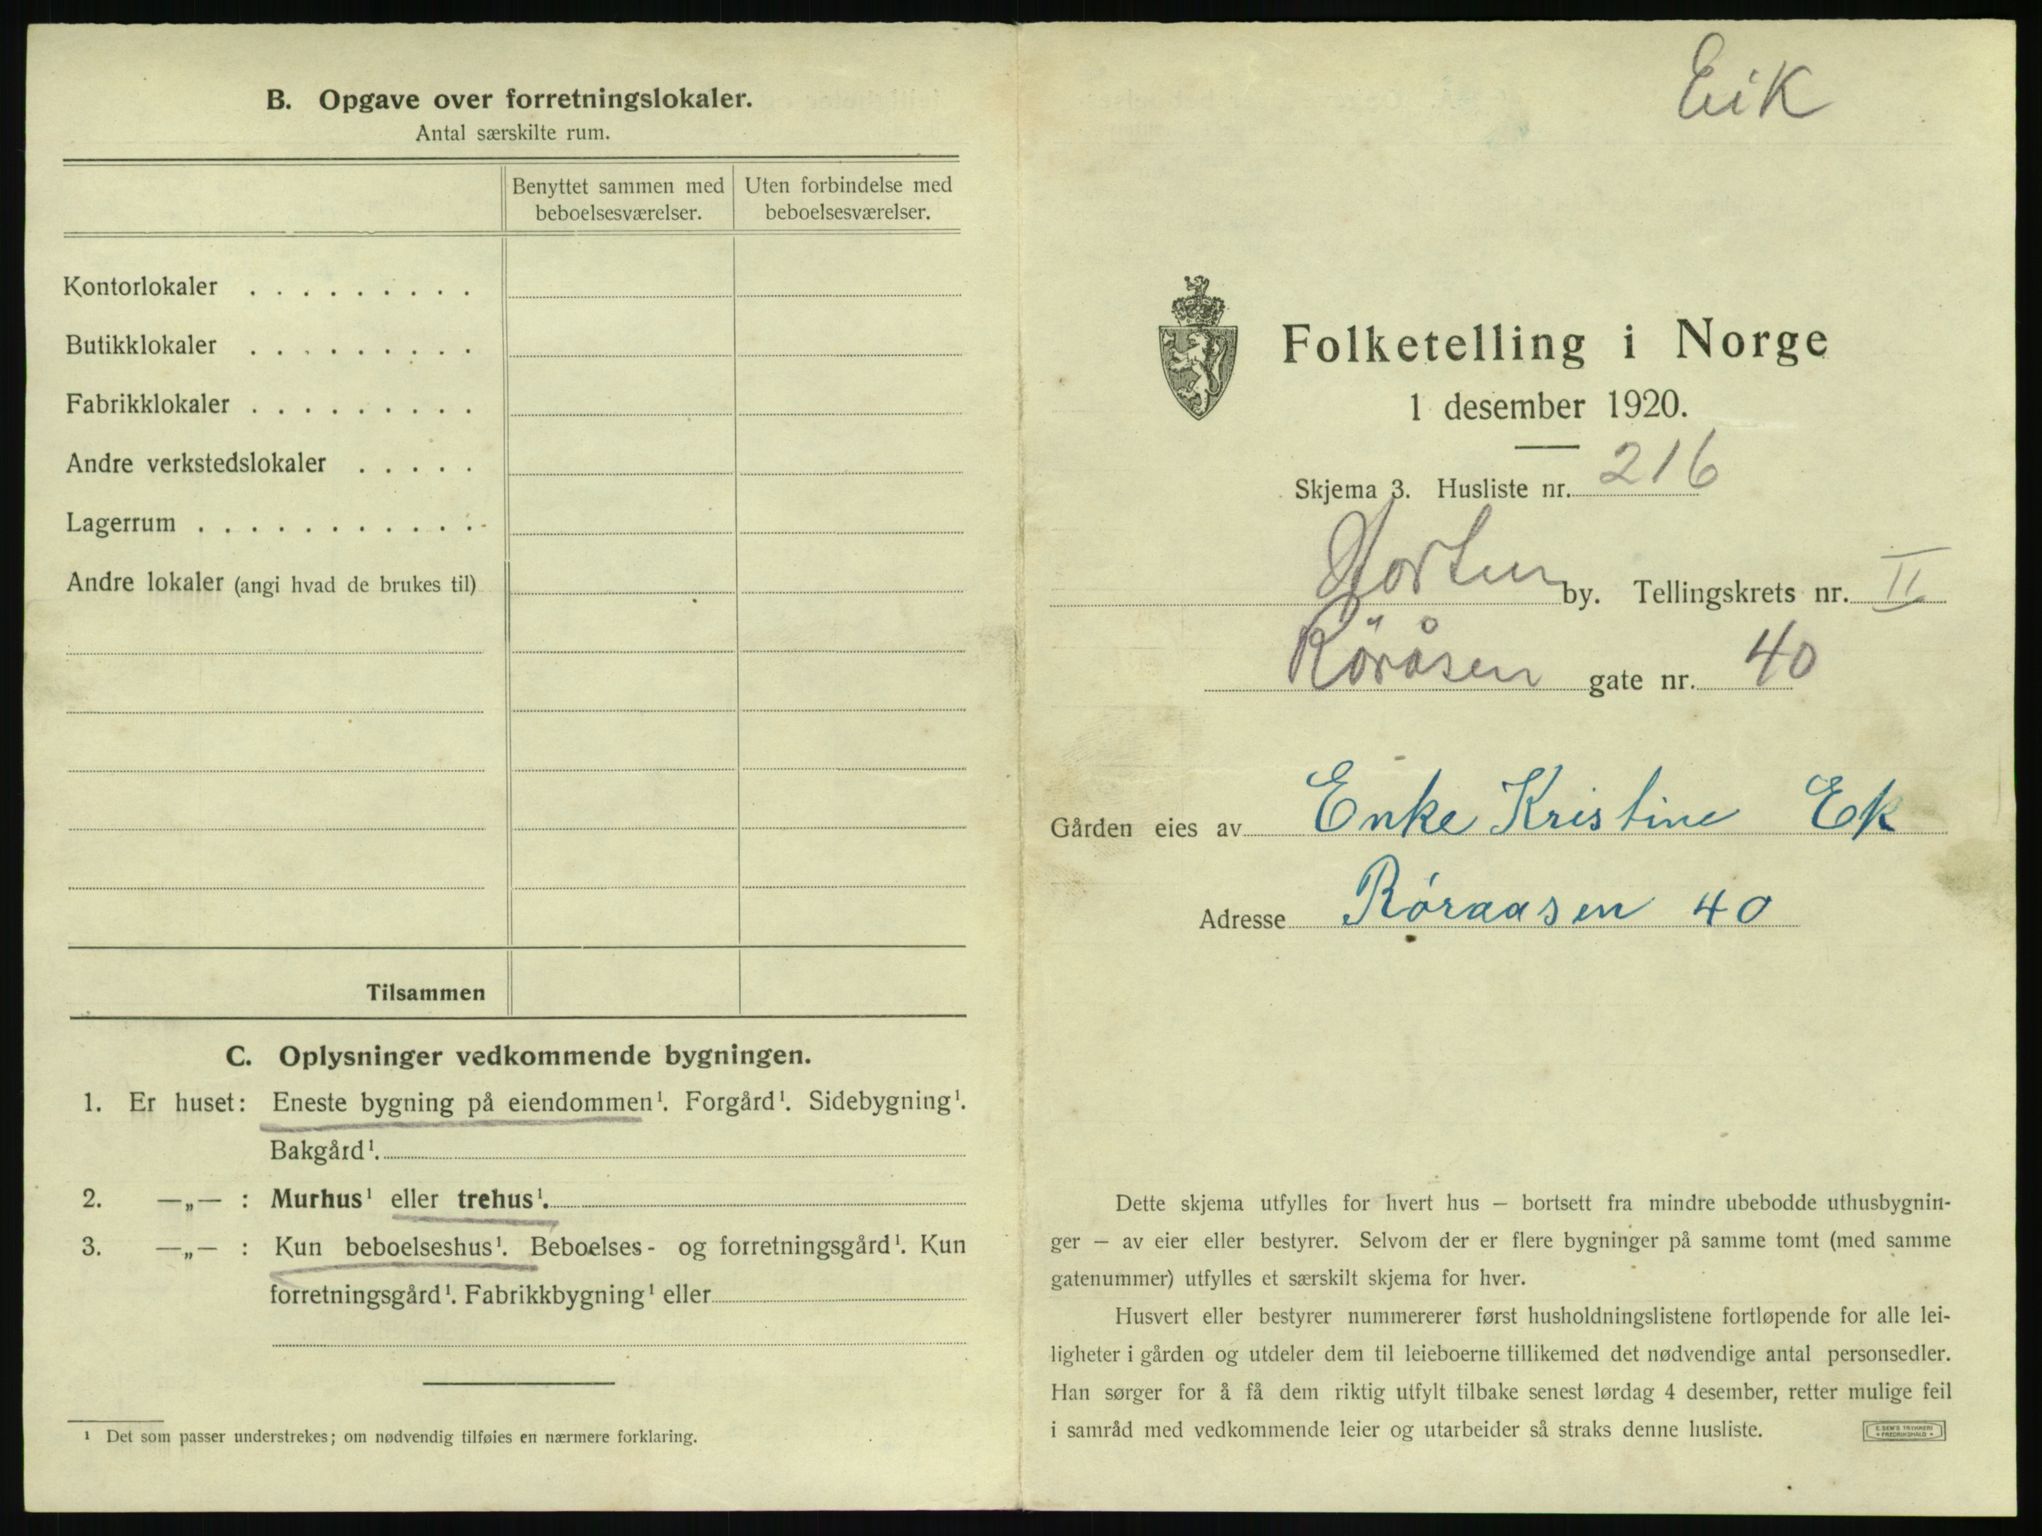 B. Opgave over forretningslokaler.
Antal særskilte rum.
Benyttet sammen med beboelsesværelser.
Uten forbindelse med beboelsesværelser.
Kontorlokaler . . . . . . . . .
Butikklokaler . . . . . . . . .
Fabrikklokaler . . . . . . . . .
Andre verkstedslokaler . . . . .
Lagerrum . . . . . . . . . . .
Andre lokaler (angi hvad de brukes til)
Tilsammen
C. Oplysninger vedkommende bygningen.
1. Er huset: Eneste bygning på eiendommen¹. Forgård¹. Sidebygning¹.
Bakgård¹.
2. —„— : Murhus¹ eller trehus¹.
3. —„— : Kun beboelseshus¹. Beboelses- og forretningsgård¹. Kun
forretningsgård¹. Fabrikkbygning¹ eller
¹ Det som passer understrekes; om nødvendig tilføies en nærmere forklaring.
Eik
Folketelling i Norge
1 desember 1920.
Skjema 3. Husliste nr. 216
Horten by. Tellingskrets nr. II
Röråsen gate nr. 40
Gården eies av Enke Kristine Ek
Adresse Røraasen 40
Dette skjema utfylles for hvert hus – bortsett fra mindre ubebodde uthusbygnin-
ger – av eier eller bestyrer. Selvom der er flere bygninger på samme tomt (med samme
gatenummer) utfylles et særskilt skjema for hver.
Husvert eller bestyrer nummererer først husholdningslistene fortløpende for alle lei-
ligheter i gården og utdeler dem til leieboerne tillikemed det nødvendige antal personsedler.
Han sørger for å få dem riktig utfylt tilbake senest lørdag 4 desember, retter mulige feil
i samråd med vedkommende leier og utarbeider så straks denne husliste.
E. SEM'S TRYKKERI
FREDRIKSHALD